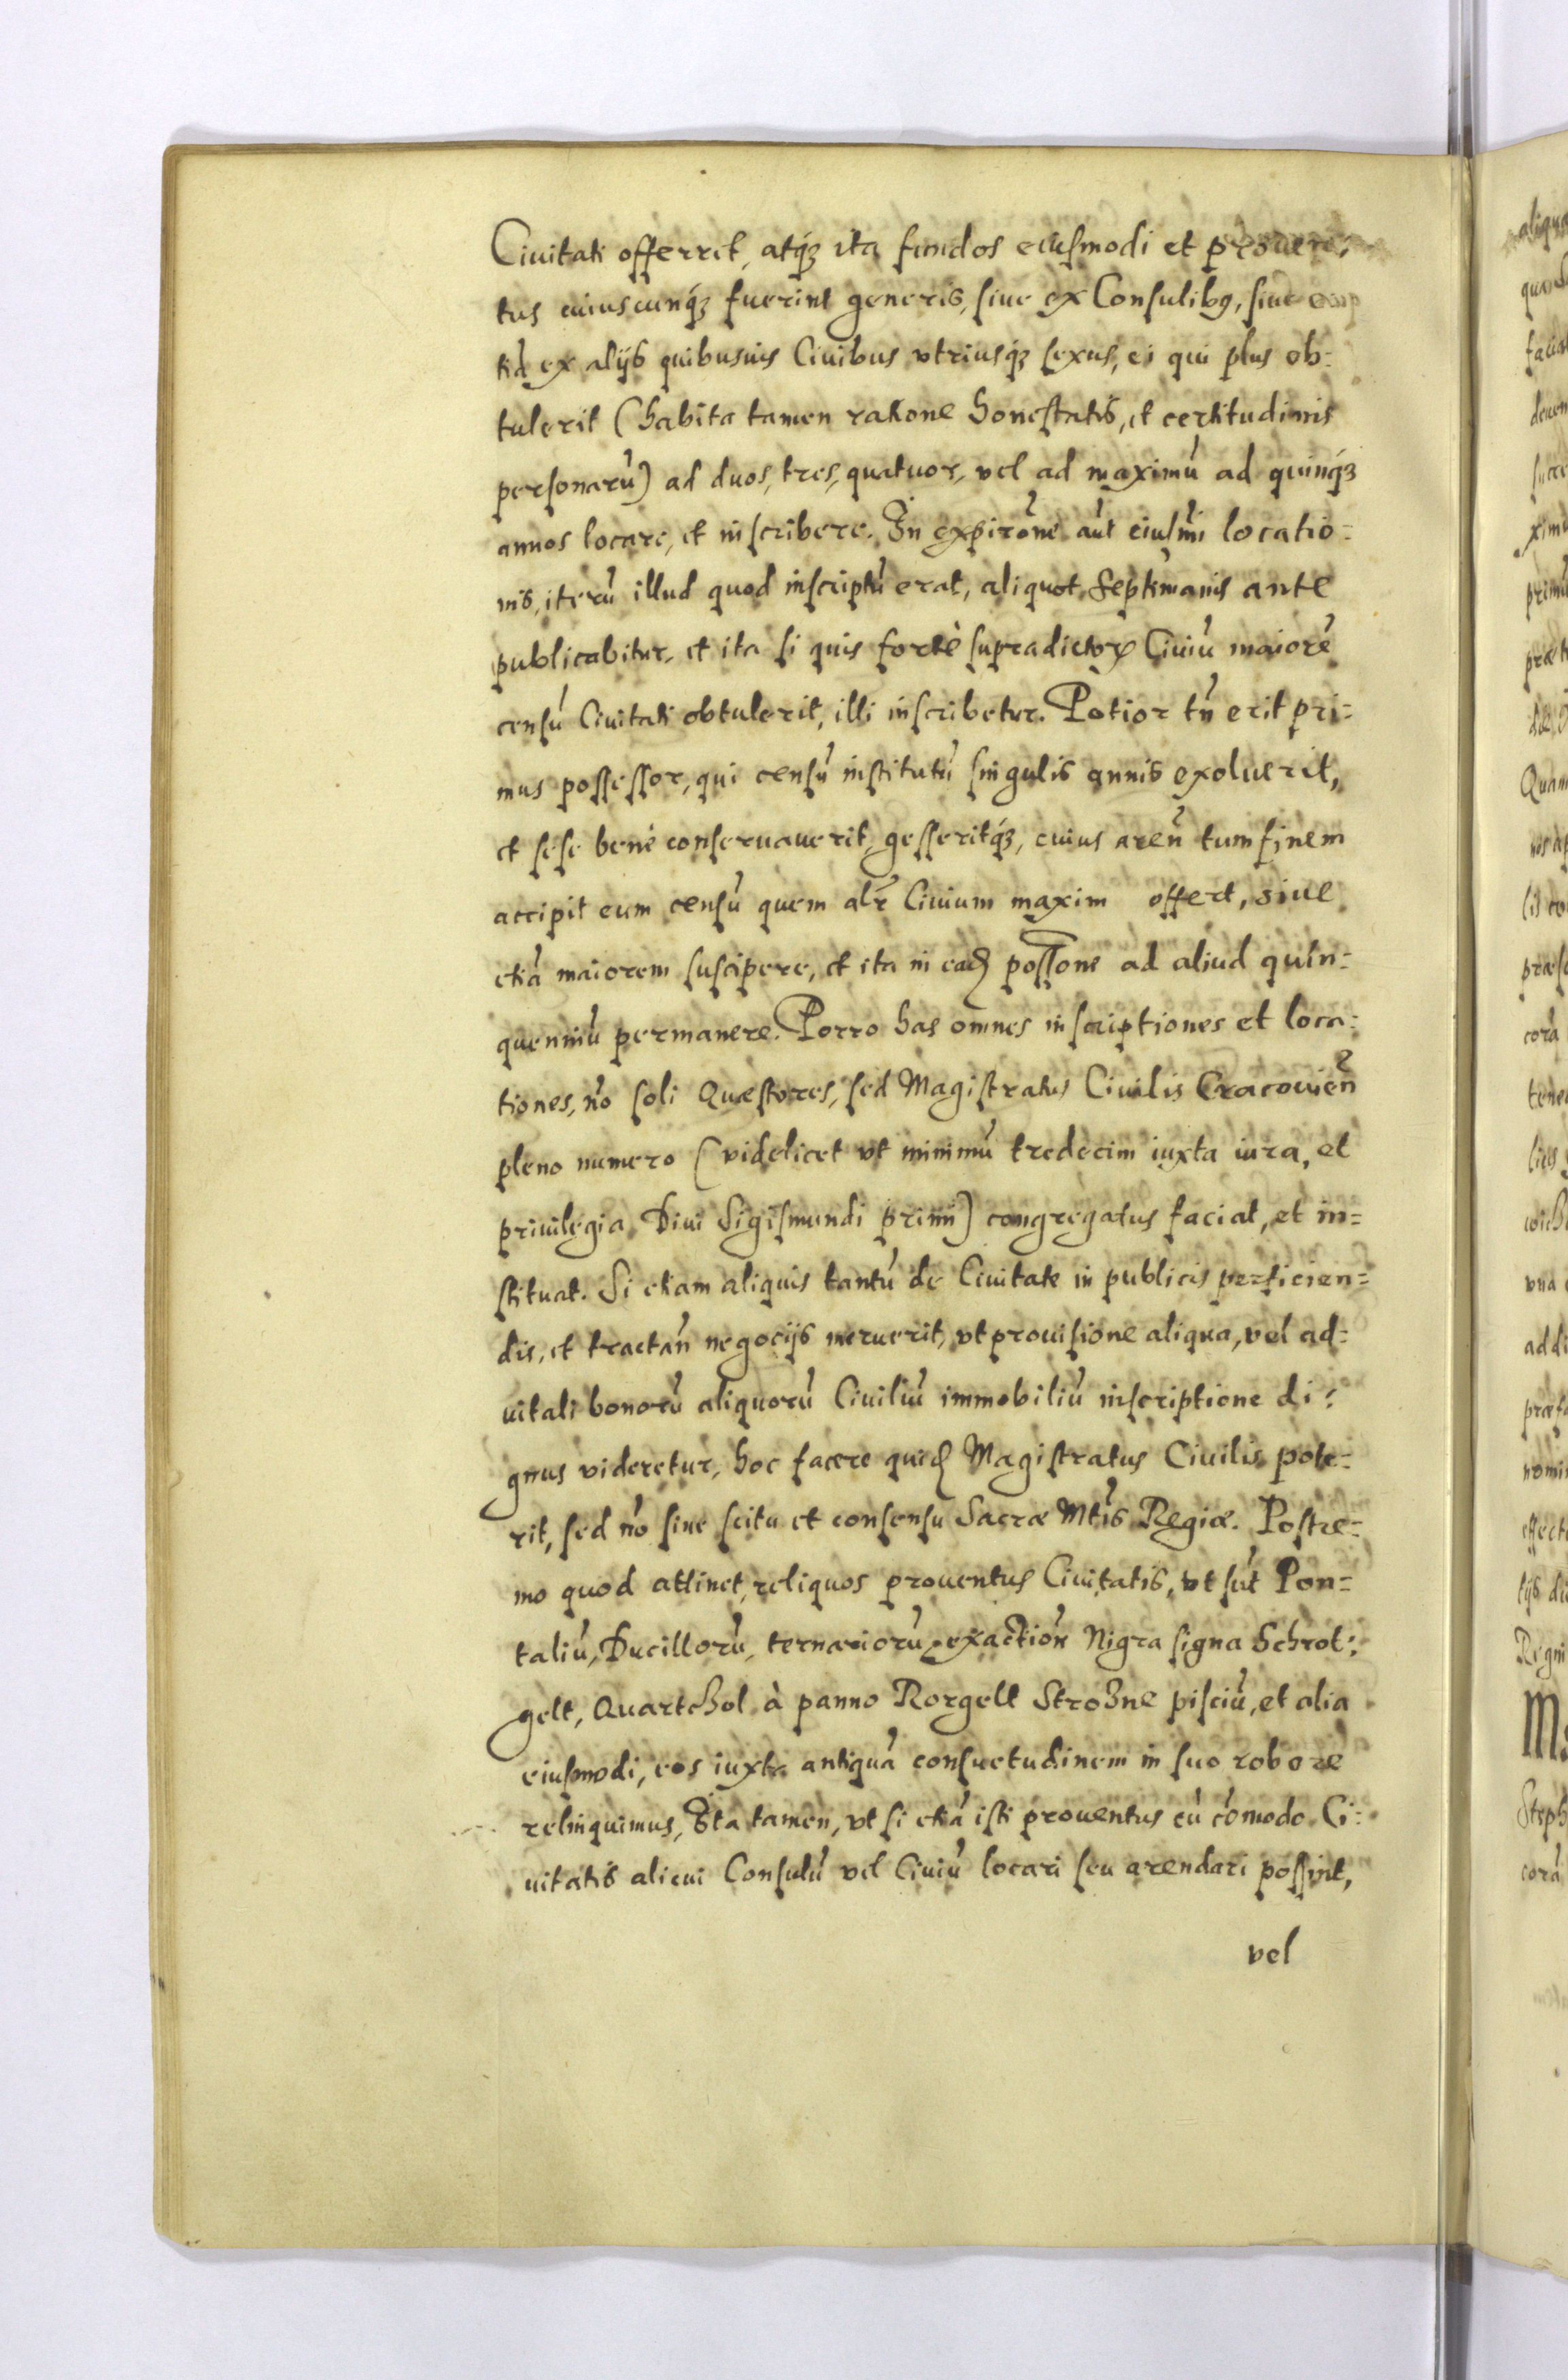 Ciuitati offerret, atq́ꝫ ita fundos eiusmodi et prouen:
tus cuiuscunq́ꝫ fuerint generis, siue ex Consulibꝰ, siue
ex alijs quibusuis Ciuibus vtriusq́ꝫ sexus, ei qui plus ob:
tulerit (habita tamen ratione honestatis, et certitudinis
personarũ) ad duos, tres, quatuor, vel ad maximũ ad quinq́ꝫ
annos locare, et inscribere. In expirõne aũt eiusm̃i locatio:
nis, iterũ illud quod inscriptũ erat, aliquot Septimanis ante
publicabitur, et ita si quis fortè supradictorꝝ Ciuiũ maiorẽ
censũ Ciuitati obtulerit, illi inscribetur. Potior tñ erit pri:
mus possessor, qui censũ institutũ singulis annis exoluerit,
et sese benè conseruauerit, gesseritq́ꝫ, cuius areñ tum finem
accipit eum censũ quem alr̃ Ciuium maxim offert, siue
etiã maiorem suscipere, et ita in eadẽ possone ad aliud quin:
quenniũ permanere. Porro has omnes inscriptiones et loca:
tiones, nõ soli Quæstores, sed Magistratus Ciuilis Cracouieñ
pleno numero (videlicet vt minimũ tredecim iuxta iura, et
priuilegia Diui Sigismundi primi) congregatus faciat, et in=
stituat. Si etiam aliquis tantũ de Ciuitate in publicis perficien=
dis, et tractañ negocijs meruerit, vt prouisione aliqua, vel ad=
uitali bonorũ aliquorũ Ciuiliũ immobiliũ inscriptione di:
gnus videretur, hoc facere quidẽ Magistratus Ciuilis pote:
rit, sed nõ sine scitu et consensu Sacræ Mtis Regiæ. Postre=
mo quod attinet, reliquos prouentus Ciuitatis, vt sũt Pon=
taliũ, Ducillorũ, ternariorũ, exactioñ Nigra signa Schrot:
gelt, Quartchol à panno Rorgelt Strozne pisciũ, et alia
eiusmodi, eos iuxta antiquã consuetudinem in suo robore
relinquimus, Ita tamen, vt si etiã isti prouentus cũ cõmodo Ci:
uitatis alicui Consulũ vel Ciuiũ locari seu arendari possint,
vel